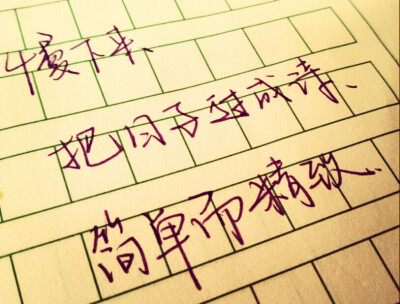 慢下来、
把日子过成诗、
简单而精致、